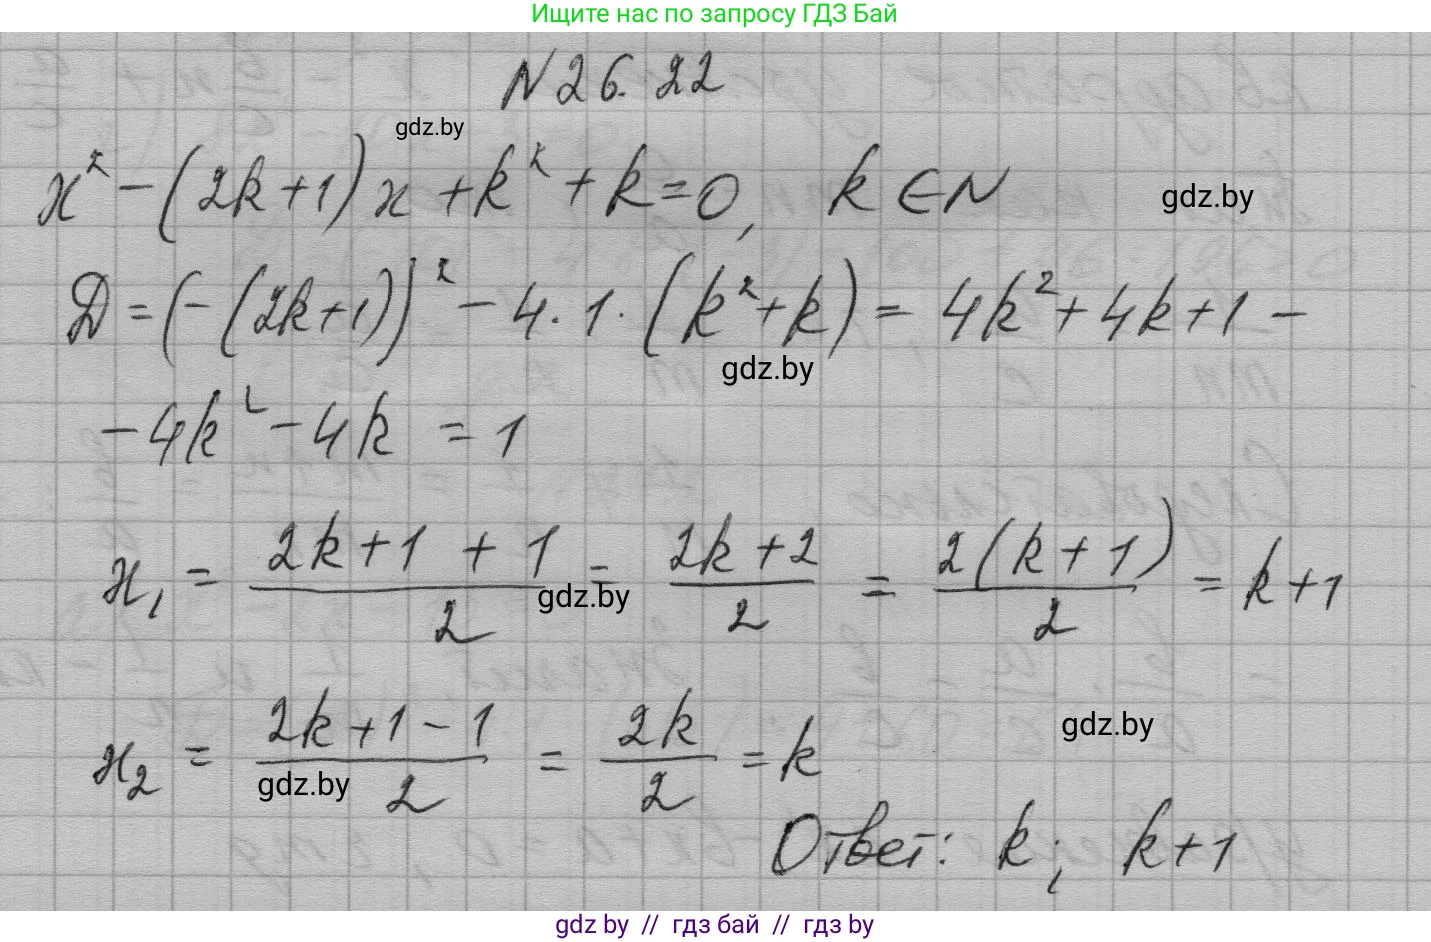 Ищите нас по запросу ГДЗ Бай
N 26.22
gdz.by
x² - (2k+1)x + k² + k = 0, k ∈ N
gdz.by
D = (-(2k+1))² - 4·1·(k²+k) = 4k² + 4k + 1 -
gdz.by
- 4k² - 4k = 1
x₁ = (2k+1+1)/2 = (2k+2)/2 = 2(k+1)/2 = k+1
gdz.by
x₂ = (2k+1-1)/2 = 2k/2 = k
gdz.by
gdz.by
Ответ: k; k+1
gdz by // гдз бай // гдз by